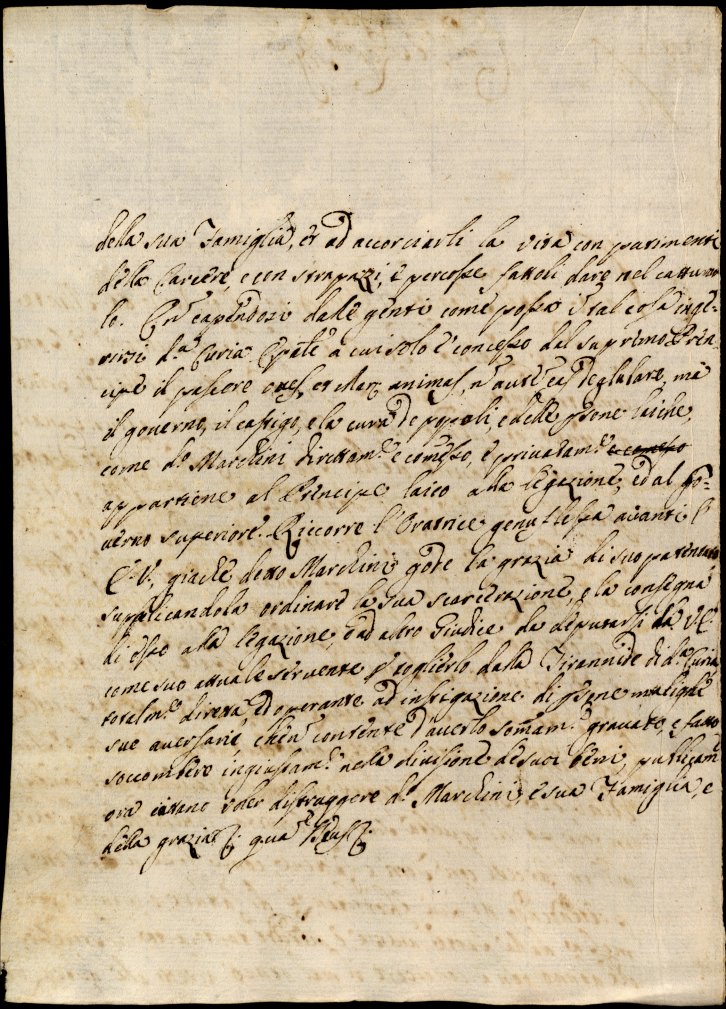 della sua Famiglia, et ad accorciarli la vita con patimenti
della Carcere, e con strapazzi, e percosse fattoli dare nel catturar
lo. Nè capendosi dalle genti come possa i tal cosa inge-
rirsi d.ª Curia a cui solo è concesso dal supremo Prin-
cipe il pascere oves, et animas, deglutare, mà
il governo, il castigo, e la cura de popoli, e delle psone laiche,
come d.º Marchini direttam.e e comesso, e privatam.e e comesso
appartiene al Principe laico alla legazione, ed al go=
verno superiore. Riccorre l'Oratrice genuflessa avanti l'
E.V. giache detto Marchini gode la grazia di suo patentato
supplicandola ordinare la sua scarcerazione, e la consegna
di esso alla legazione, ò ad altro Giudice da deputarsi da V.E.
come suo attuale servente p togliersi dalla Tirannide di d.ª Curia
totalm.e diretta, ed operante ad instigazione di psone maligne
sue aversarie, che nō contente d'averlo somam.e gravato, e fatto
soccombere ingiustam.e nella divisione de suoi beni, publicam.e
ora voler distruggere d.º Marchini, e sua Famiglia, e
della grazia &. quā Deus &.